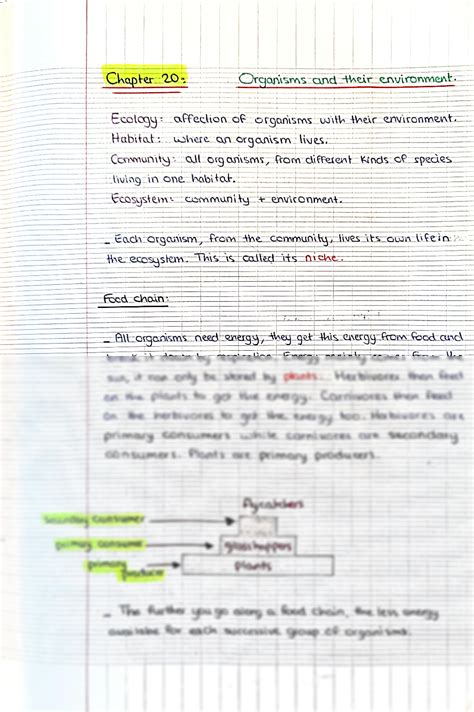 Chapter 20: Organisms and their environment.
Ecology: affection of organisms with their environment.
Habitat: where an organism lives.
Community: all organisms, from different kinds of species
living in one habitat.
Ecosystem: community + environment.
_ Each organism, from the community, lives its own life in
the ecosystem. This is called its niche.
Food chain:
_ All organisms need energy, they get this energy from food and
break it down by respiration. Energy mainly comes from the
sun, it can only be stored by plants. Herbivores then feed
on the plants to get the energy. Carnivores then feed
on the herbivores to get the energy too. Herbivores are
primary consumers while carnivores are secondary
consumers. Plants are primary producers.
flycatchers
secondary consumer
primary consumer grasshoppers
primary plants
producer
_ The further you go along a food chain, the less energy
available for each successive group of organisms.